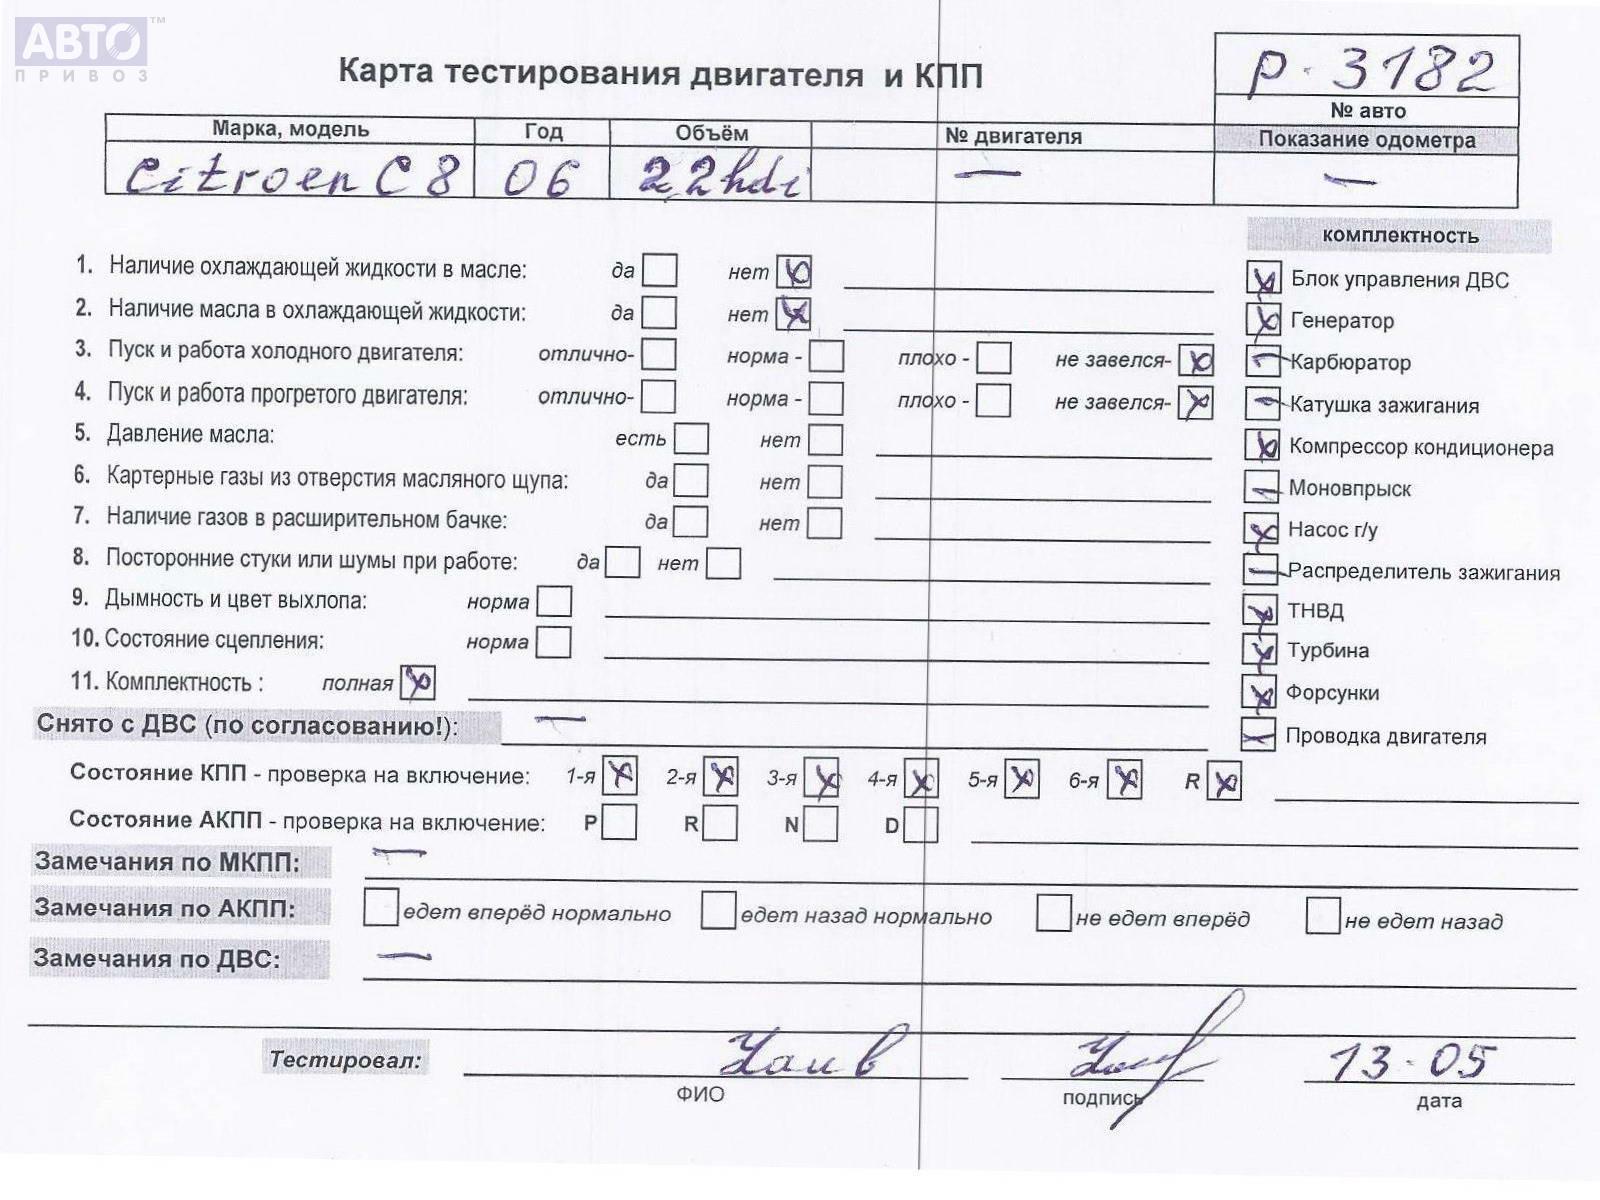 АВТО™
ПРИВОЗ
Карта тестирования двигателя и КПП
р. 3182
№ авто
Марка, модель Год Объём № двигателя Показание одометра
Citroen C8 06 2,2hdi — —
комплектность
1. Наличие охлаждающей жидкости в масле: да нет
Блок управления ДВС
2. Наличие масла в охлаждающей жидкости: да нет
Генератор
3. Пуск и работа холодного двигателя: отлично- норма - плохо - не завелся-
Карбюратор
4. Пуск и работа прогретого двигателя: отлично- норма - плохо - не завелся-
Катушка зажигания
5. Давление масла: есть нет
Компрессор кондиционера
6. Картерные газы из отверстия масляного щупа: да нет
Моновпрыск
7. Наличие газов в расширительном бачке: да нет
Насос г/у
8. Посторонние стуки или шумы при работе: да нет
Распределитель зажигания
9. Дымность и цвет выхлопа: норма
ТНВД
10. Состояние сцепления: норма
Турбина
11. Комплектность : полная
Форсунки
Снято с ДВС (по согласованию!): —
Проводка двигателя
Состояние КПП - проверка на включение: 1-я 2-я 3-я 4-я 5-я 6-я R
Состояние АКПП - проверка на включение: P R N D
Замечания по МКПП: —
Замечания по АКПП: едет вперёд нормально едет назад нормально не едет вперёд не едет назад
Замечания по ДВС: —
Тестировал: 13.05
ФИО подпись дата